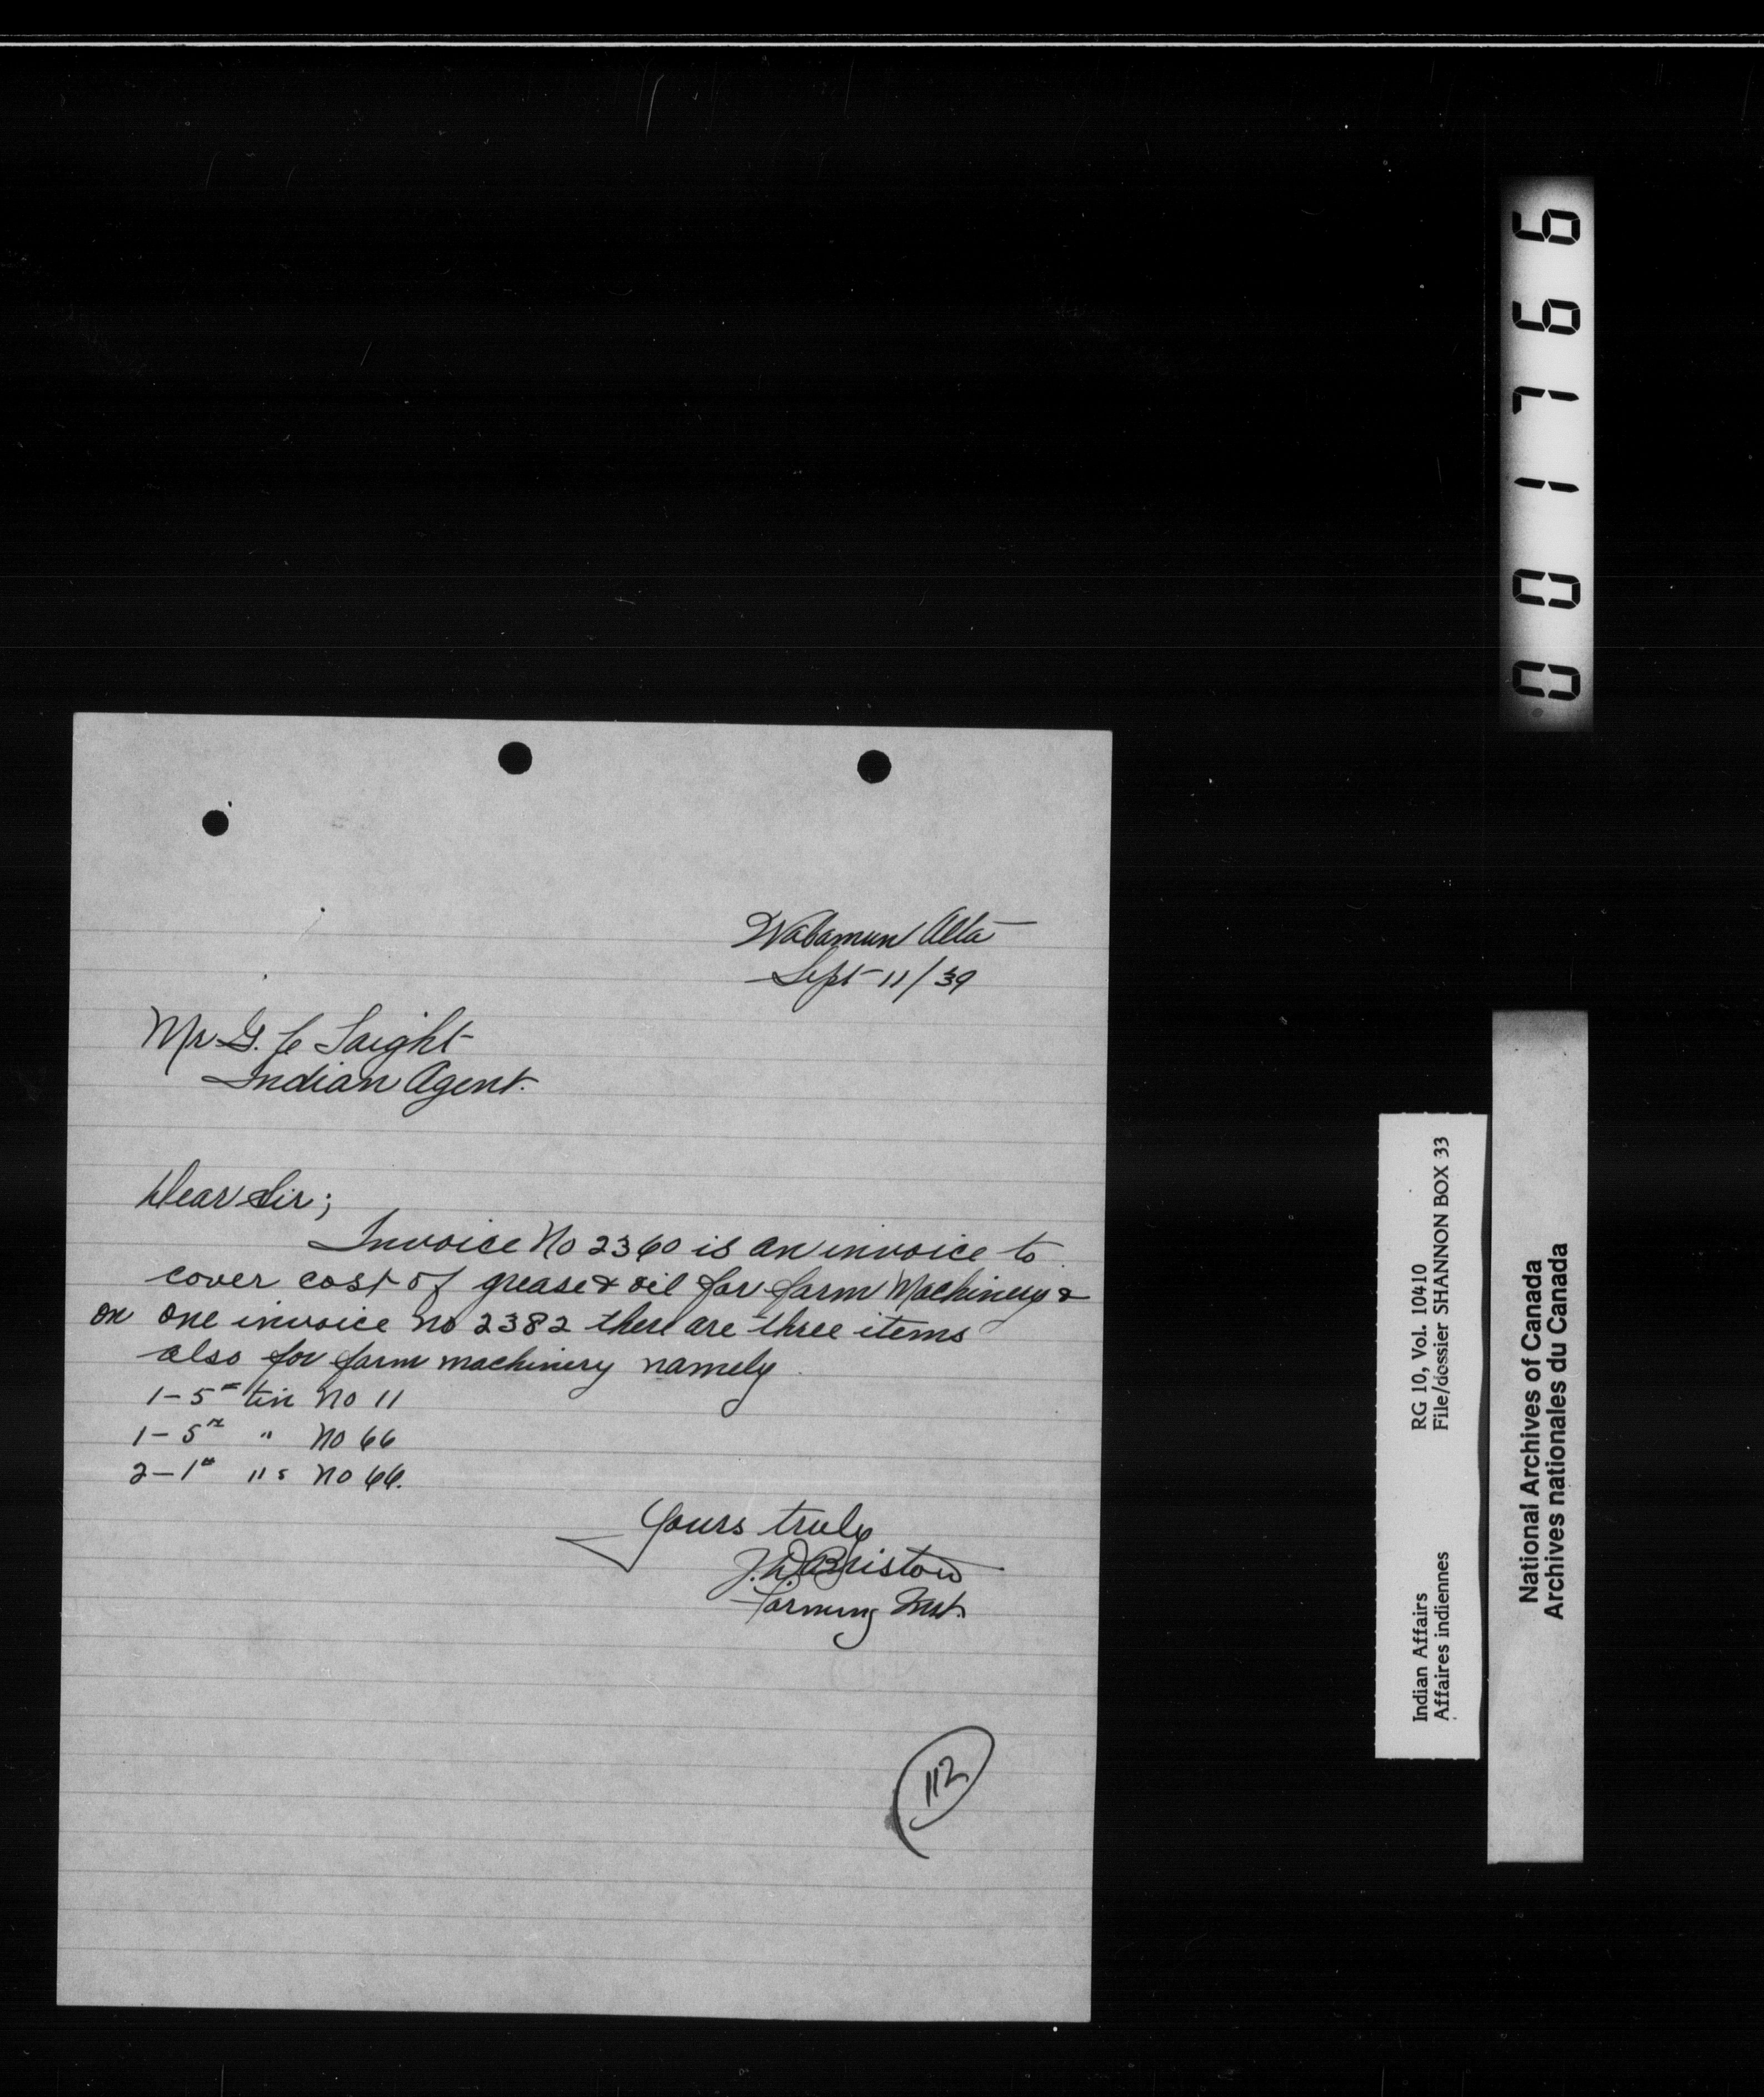 Wabamun Alta
Sept 11/39
Mr G. C Laight
Indian Agent.
Dear Sir;
Invoice No 2360 is an invoice to
cover cost of grease & oil for farm Machinery &
on one invoice no 2382 there are three items
also for farm machinery namely.
1-5# tin No 11
1-5# " No 66
2-1# "s No 66.
Yours truly
Bristow
Farming Inst.
112
001766
Indian Affairs RG 10, Vol. 10410
Affaires indiennes File/dossier SHANNON BOX 33
National Archives of Canada
Archives nationales du Canada